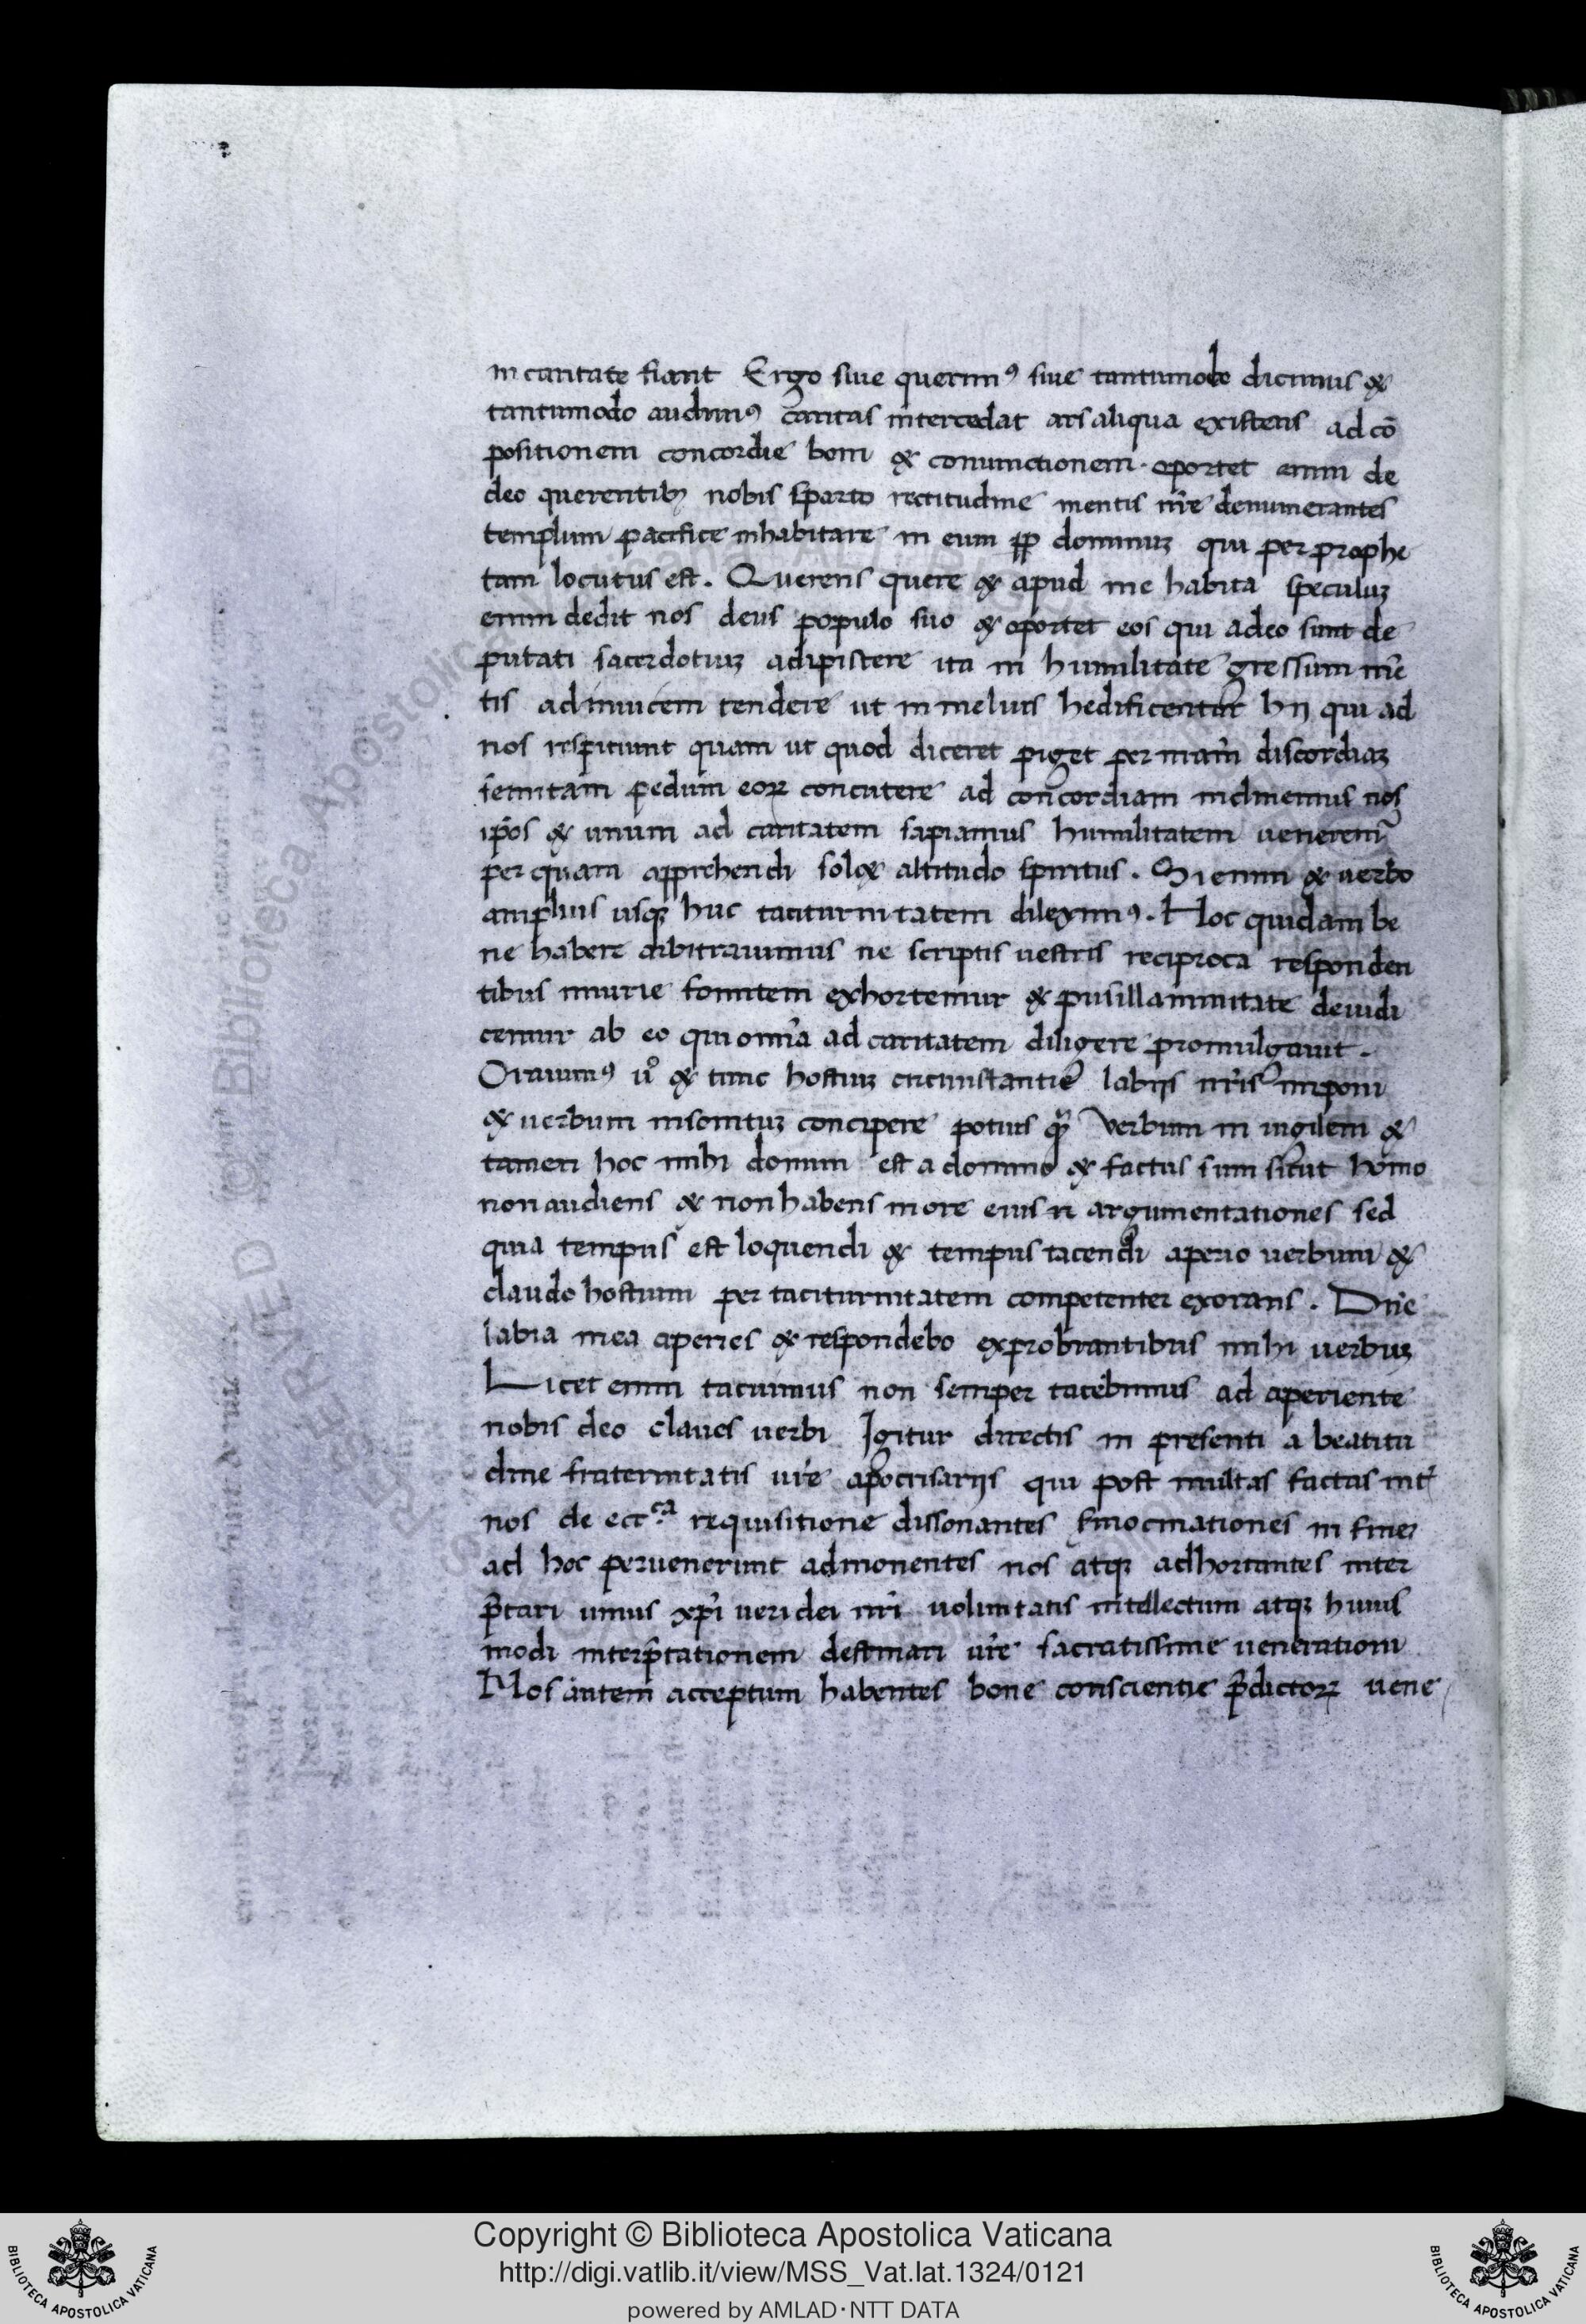 in caritate fiant Ergo siue querimꝰ siue tantumodo dicimus &
tantumodo audimꝰ caritas intercedat ars aliqua existens ad cō
positionem concordie boni & coniunctionem · oportet enim de
deo querentibꝫ nobis sparto rectitudine mentis nr̄e denumerantes
templum pacifice inhabitare in eum ꝓp dominuꝫ qui per prophe
tam locutus est . Querens quere & apud me habita speculuꝫ
enim dedit nos deus populo suo & oportet eos qui adeo sunt de
putati sacerdotiuꝫ adipiscere ita in humilitate gressum mē
tis adinuicem tendere ut in melius hedificentur hij qui ad
nos respiciunt quam ut quod diceret piget per mām discordiaꝫ
semitam pedum eoꝝ concutere ad concordiam inclinemus nos
ip̄os & unum ad caritatem sapiamus humilitatem uenerem̃
per quam apprehendi sol& altitudo spiritus . Si enim & uerbo
amplius usqꝫ huc taciturnitatem dileximꝰ . Hoc quidam be
ne habere arbitrauimus ne scriptis uestris reciproca responden
tibus iniurie fomitem exhortemur & pusillanimitate deiudi
cemur ab eo qui om̄ia ad caritatem diligere promulgauit .
Orauimꝰ uͦ & tunc hostiuꝫ circunstantie labijs nr̄is imponi
& uerbum insonituꝫ concipere potius qꝫ̃ verbum in uigilem &
tamen hoc mihi donum est a domino & factus sum sicut homo
non audiens & non habens in ore eius n argumentationes sed
quia tempus est loquendi & tempus tacendi aperio uerbum &
claudo hostium per taciturnitatem competenter exorans . Dn̄e
labia mea aperies & respondebo exprobrantibus mihi uerbuꝫ
Licet enim tacuimus non semper tacebimus ad aperiente
nobis deo claues uerbi Igitur directis in presenti a beatitu
dine fraternitatis ur̄e apocrisarijs qui post multas factas int̄
nos de ecc.ᶜᵃ requisitione dissonantes sinocinationes in fineꝫ
ad hoc peruenerunt admonentes nos atqꝫ adhortantes inter
p̄tari unius xp̄i ueri dei nr̄i uoluntatis intellectum atqꝫ huius
modi interp̄tationem destinari ur̄e sacratissime uenerationi
Nos autem acceptum habentes bone conscientie p̄dictoꝝ uene
Copyright © Biblioteca Apostolica Vaticana
http://digi.vatlib.it/view/MSS_Vat.lat.1324/0121
powered by AMLAD·NTT DATA